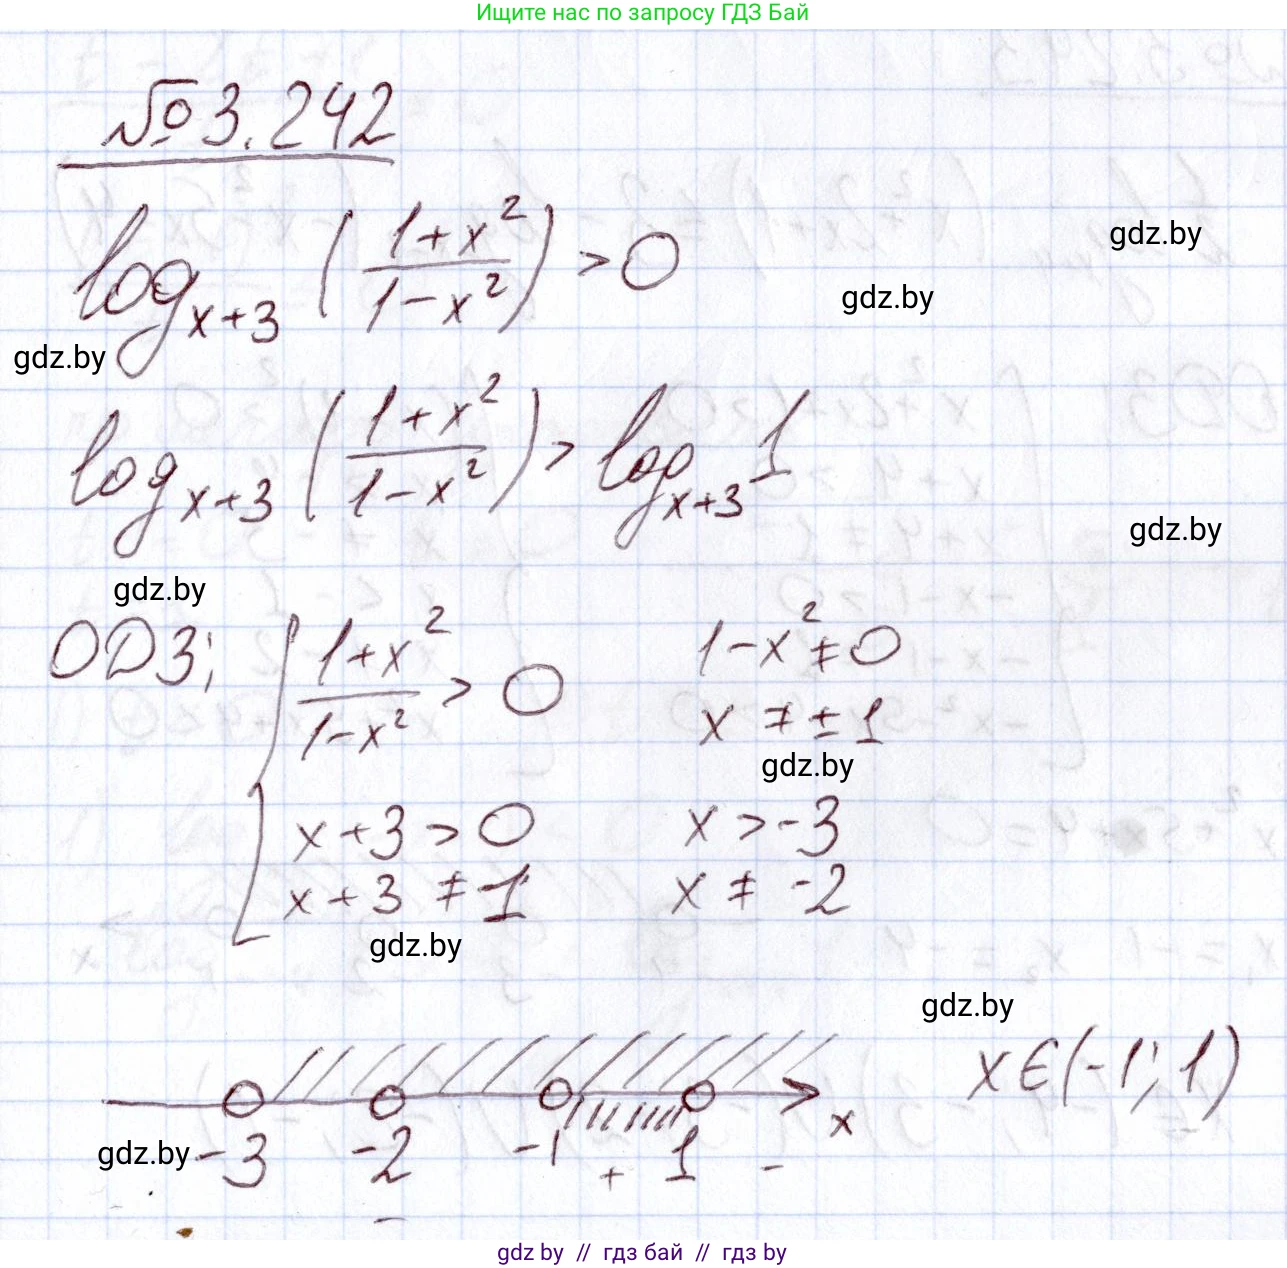 Ищите нас по запросу ГДЗ Бай
№ 3.242
log_{x+3} ((1+x²)/(1-x²)) > 0
gdz.by
gdz.by
gdz.by
log_{x+3} ((1+x²)/(1-x²)) > log_{x+3} 1
gdz.by
gdz.by
ОДЗ; { (1+x²)/(1-x²) > 0 1-x² ≠ 0
x ≠ ±1
gdz.by
x+3 > 0 x > -3
x+3 ≠ 1 x ≠ -2
gdz.by
gdz.by
x ∈ (-1; 1)
x
gdz.by -3 -2 -1 + 1 -
-
gdz by // гдз бай // гдз by